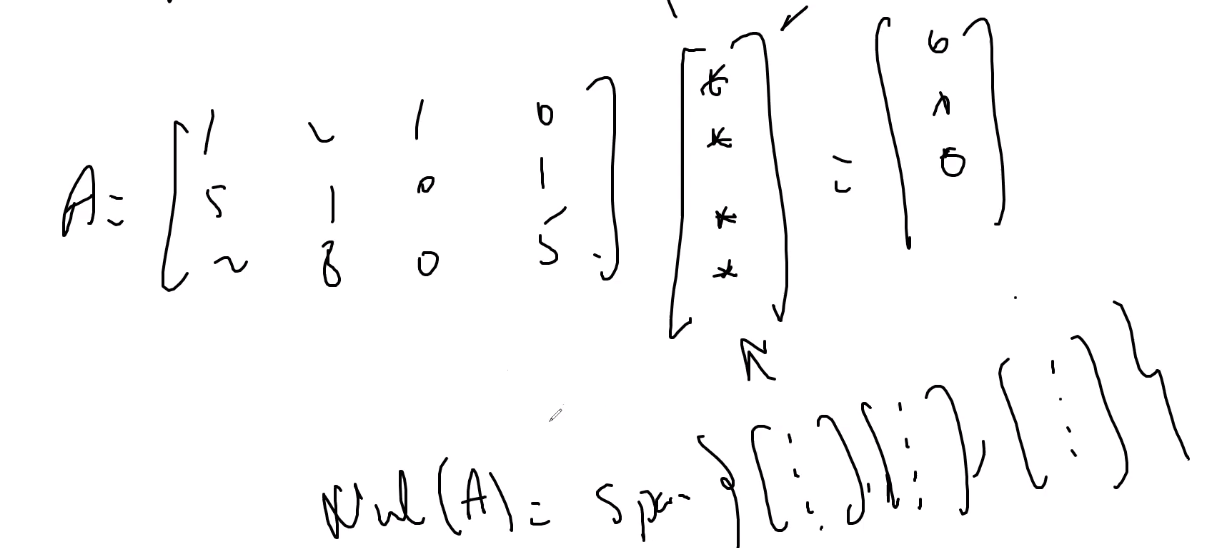 A = [ 1 2 1 0 ] [ * ] = [ 0 ]
[ 5 1 0 1 ] [ * ] [ 0 ]
[ 2 8 0 5 ] [ * ] [ 0 ]
[ * ]
Nul(A) = span { [ ⋮ ], [ ⋮ ], [ ⋮ ] }